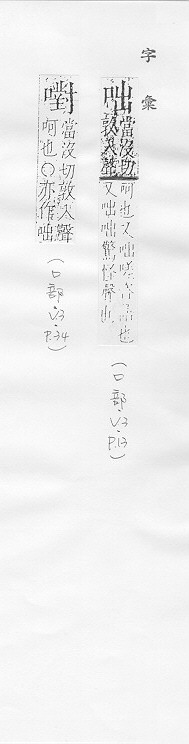 字彙
咄
當沒切
敦入聲
呵也又咄嗟語也
又咄咄驚怪聲也
(口部.V3.P.13)
嚉
當沒切敦入聲
呵也○亦作咄
(口部.V3.P.34)